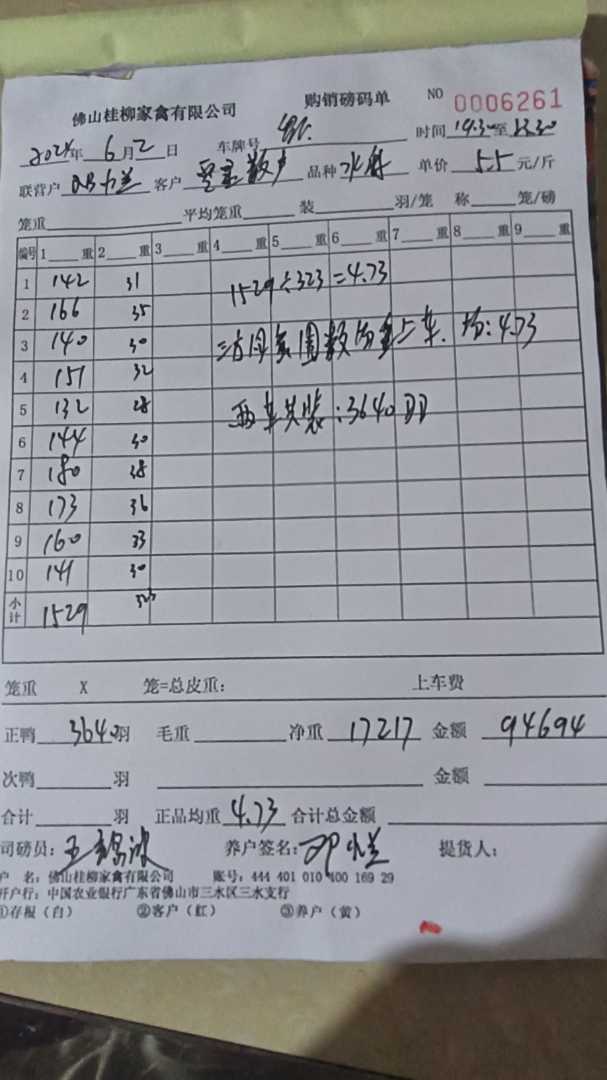 佛山桂柳家禽有限公司 购销磅码单 NO 0006261
2024年 6月2日 车牌号 时间 14:30至
联营户 客户 散户 品种 水鸭 单价 5.5 元/斤
笼重 平均笼重 装 羽/笼 称 笼/磅
编号 1 重 2 重 3 重 4 重 5 重 6 重 7 重 8 重 9 重
1 142 31 1529÷323=4.73
2 166 35
3 140 30 周数均重上车. 均:4.73
4 151 32
5 132 28 两车共装:3640只
6 144 30
7 180 38
8 173 36
9 160 33
10 141 30
小计 1529 323
笼重 X 笼=总皮重: 上车费
正鸭 3640羽 毛重 净重 17217 金额 94694
次鸭 羽 金额
合计 羽 正品均重 4.73 合计总金额
司磅员: 养户签名: 提货人:
户 名: 佛山桂柳家禽有限公司 账号: 444 401 010 400 169 29
开户行: 中国农业银行广东省佛山市三水区三水支行
①存根(白) ②客户(红) ③养户(黄)